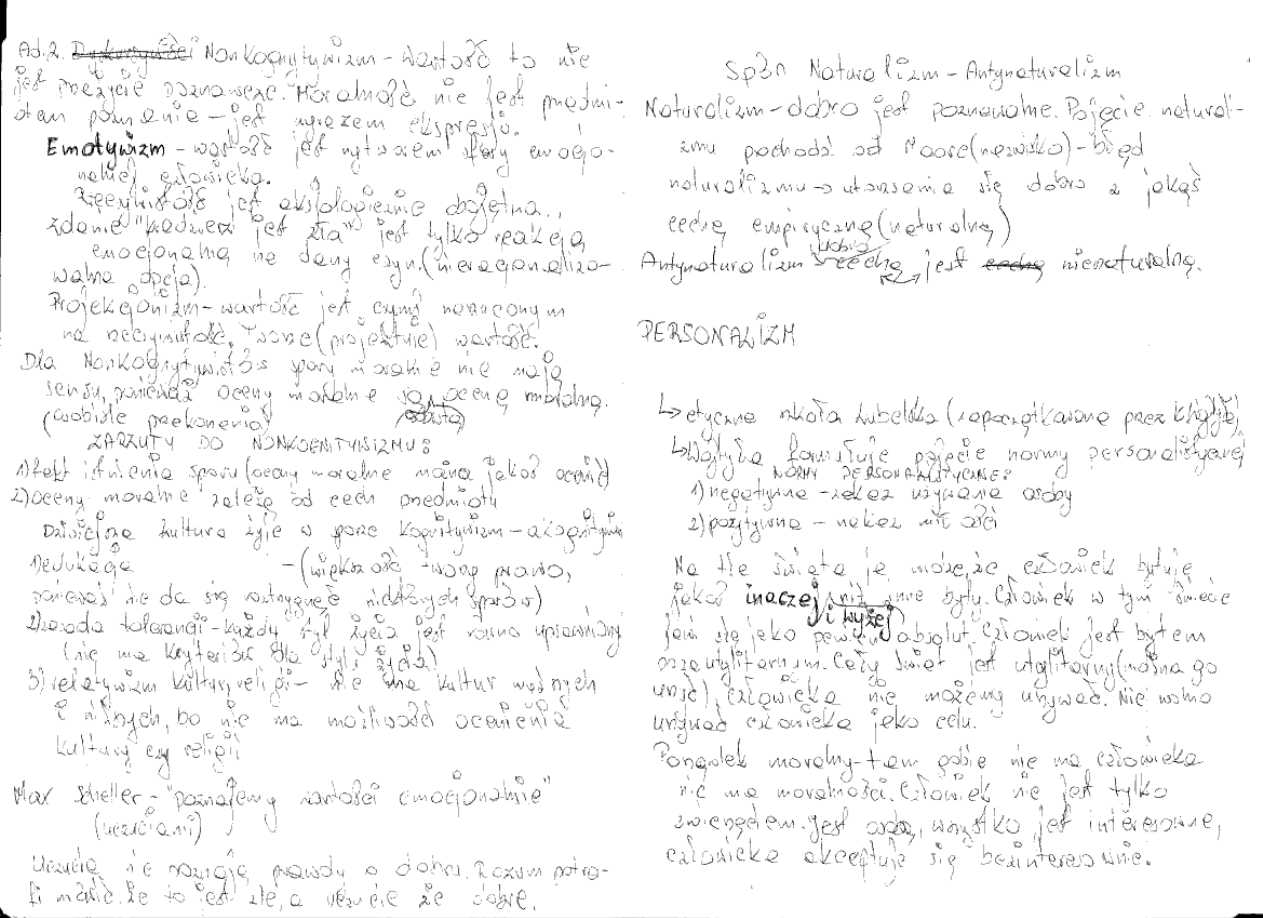 Ad.2. Nonkognitywizm – wartość to nie
jest przeżycie poznawcze. Moralność nie jest przedmi-
otem poznania – jest wyrazem ekspresji.
Emotywizm – wartość jest wytworem sfery emocjo-
nalnej człowieka.
Rzeczywistość jest aksjologicznie obojętna.
Zdanie "kradzież jest zła" jest tylko reakcją
emocjonalną na dany czyn. (nieracjonalizo-
walna opcja).
Projekcjonizm – wartość jest czymś narzuconym
na rzeczywistość. (projektuje) wartość.
Dla Nonkognitywistów spory moralne nie mają
sensu, ponieważ oceny moralne są oceną
(osobiste przekonania)
ZARZUTY DO NONKOGNITYWIZMU:
1) fakt istnienia sporu (oceny moralne można jakoś ocenić)
2) oceny moralne zależą od cech przedmiotu
Dzisiejsza kultura żyje w parze kognitywizm –
1) edukacja – (większość tworzy prawo,
ponieważ nie da się rozstrzygnąć niektórych sporów)
2) zasada tolerancji – każdy styl życia jest równo uprawniony
(nie ma kryteriów dla stylu życia)
3) relatywizm kultur, religii – nie ma kultur ważnych
i niższych, bo nie ma możliwości ocenienia
kultury czy religii
Max Scheller – "poznajemy wartości emocjonalnie"
(uczuciami)
Uczucia nie poznają prawdy o dobru. Rozum potra-
fi mówić że to jest złe, a uczucie że dobre.
Spór Naturalizm – Antynaturalizm
Naturalizm – dobro jest poznawalne. Pojęcie natural-
izmu pochodzi od Moore (nazwisko) – błąd
naturalizmu → utożsamienie się dobra z jakąś
cechą empiryczną (naturalną)
Antynaturalizm dobro cechą jest nienaturalną.
PERSONALIZM
↳ etyczna szkoła lubelska (zapoczątkowana przez K. Wojtyłę)
↳ Wojtyła formułuje pojęcie normy personalistycznej
NORMY PERSONALISTYCZNE:
1) negatywna – zakaz używania osoby
2) pozytywna – nakaz miłości
Na tle świata je może, że człowiek bytuje
jakoś inaczej i wyżej niż inne byty. Człowiek w tym świecie
jawi się jako pewien absolut. Człowiek jest bytem
pozautylitarnym. Cały świat jest utylitarny (można go
użyć), człowieka nie możemy używać. Nie wolno
używać człowieka jako celu.
Porządek moralny – tam gdzie nie ma człowieka
nie ma moralności. Człowiek nie jest tylko
zwierzęciem. Jest osobą, wszystko jest interesowne,
człowieka akceptuje się bezinteresownie.